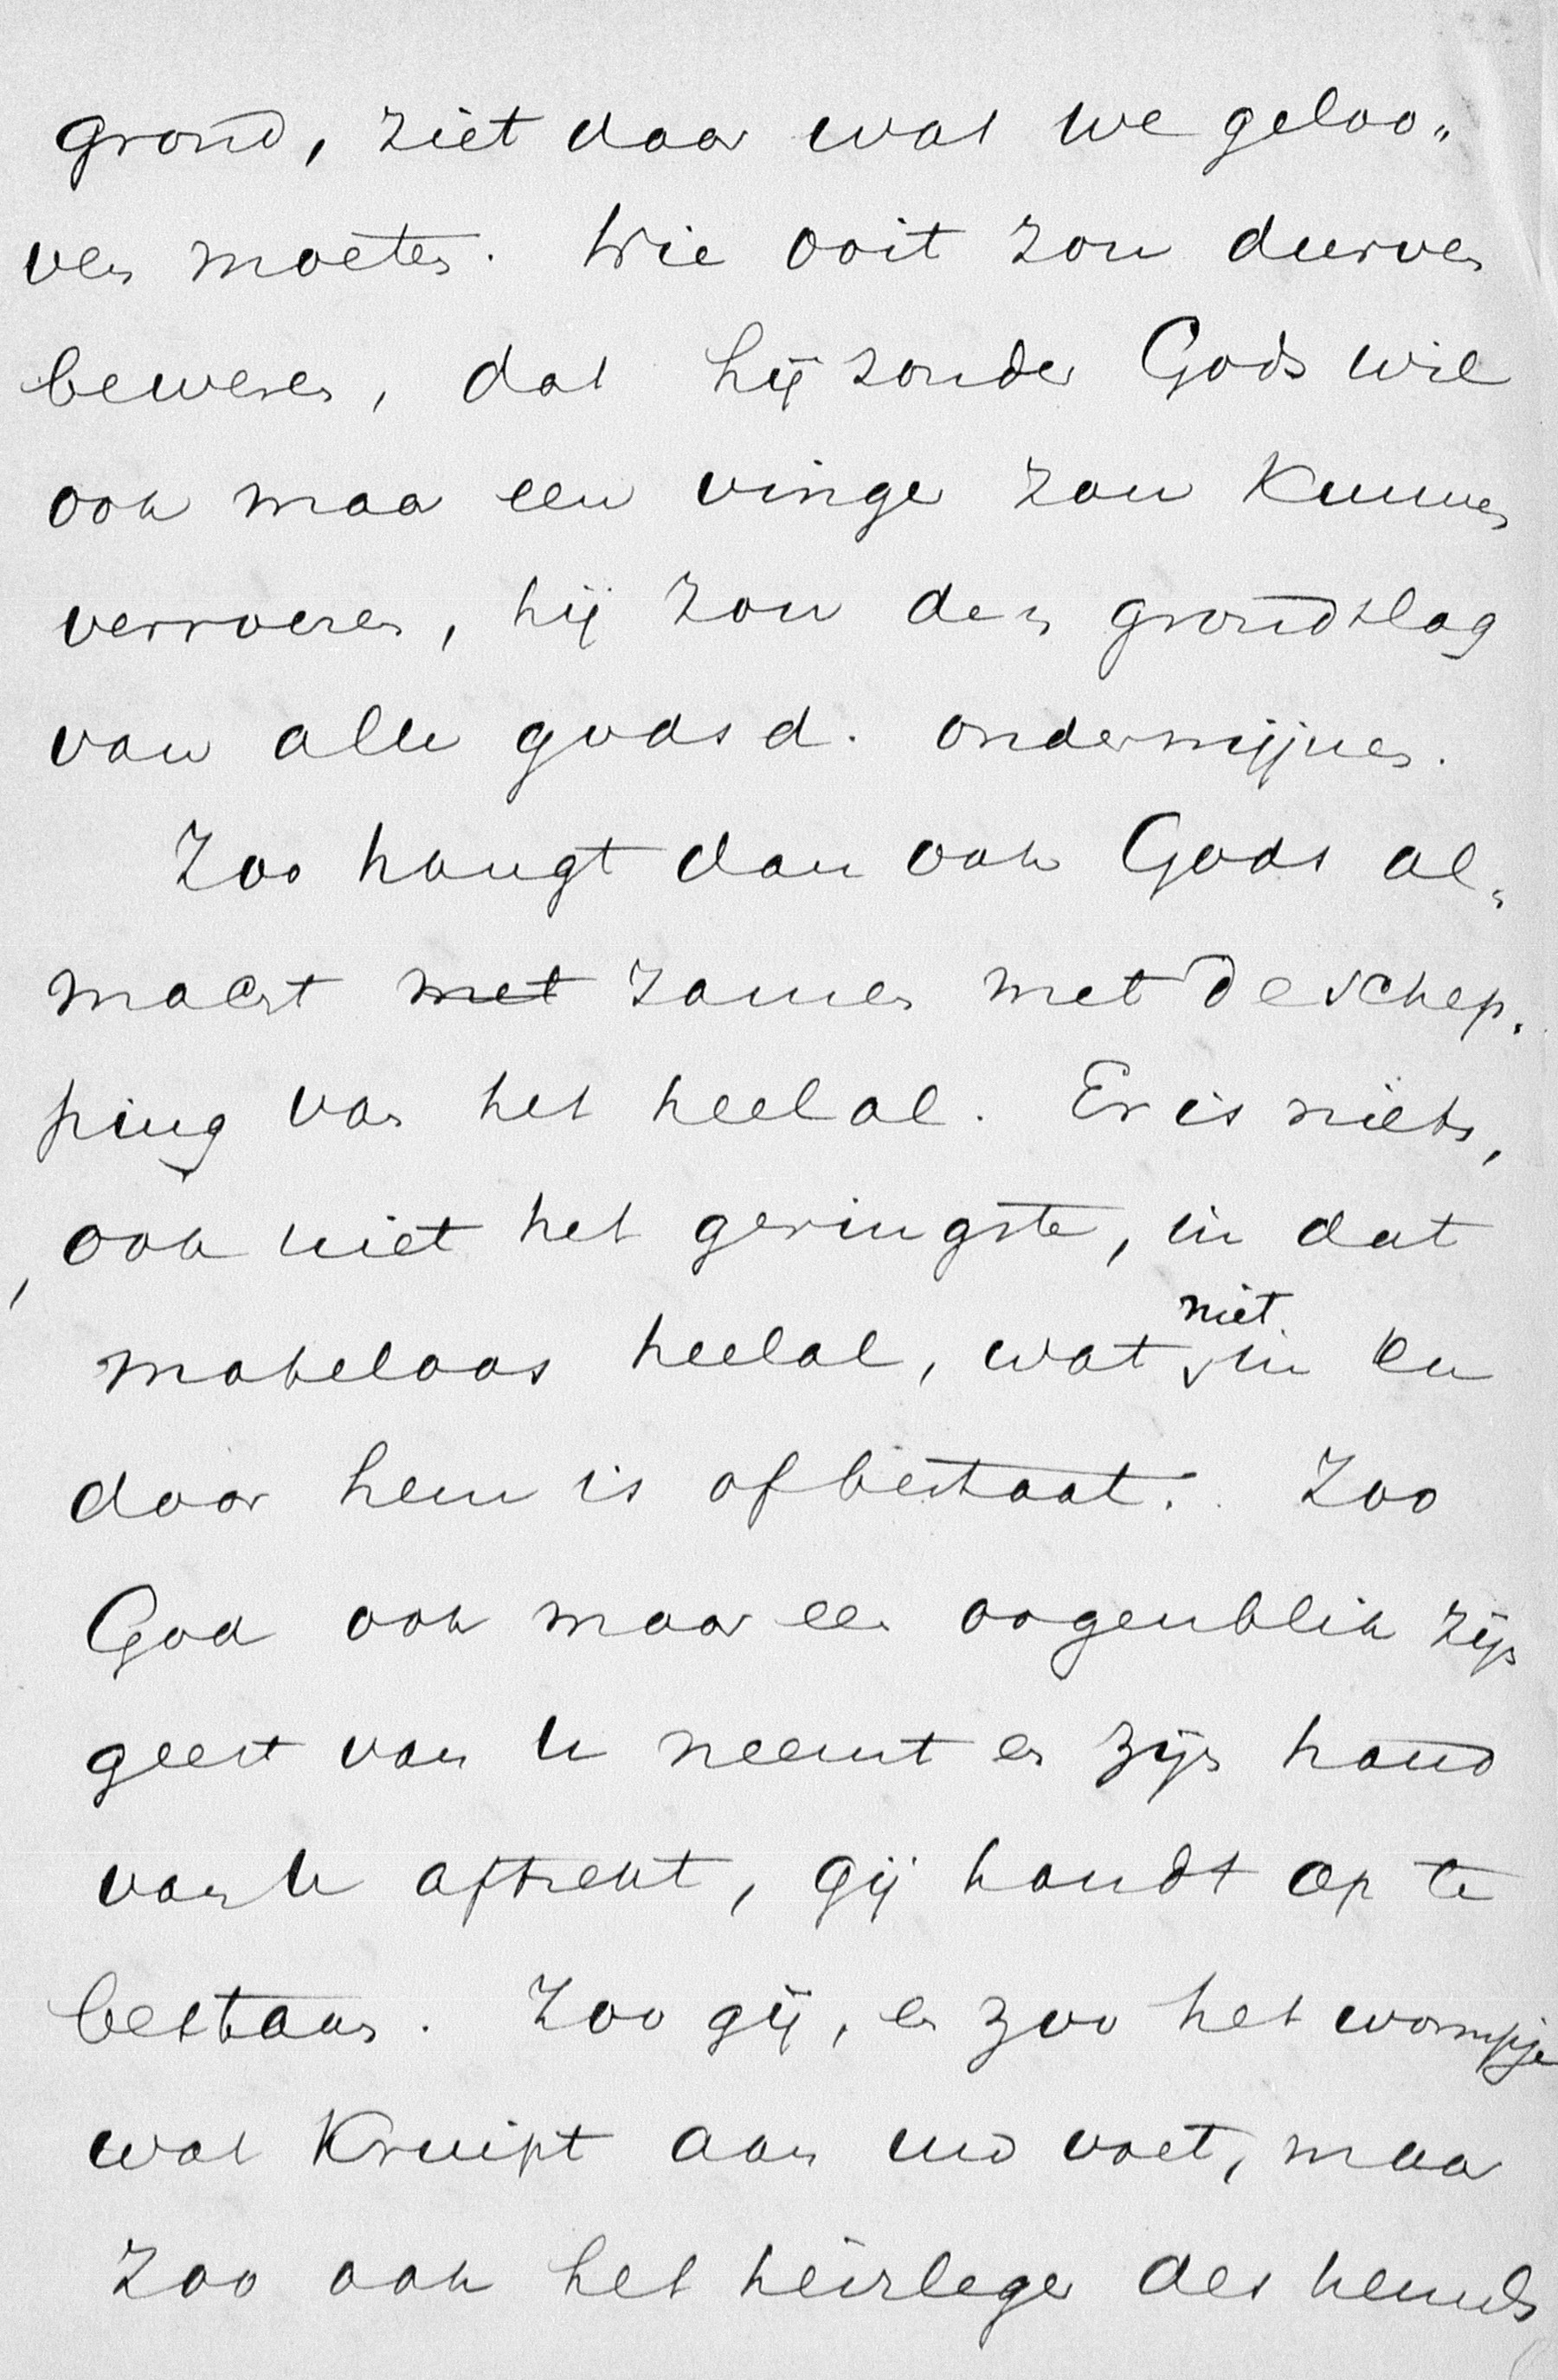 grond, ziet daar wat we geloo„
ven moeten. Wie ooit zou durven
beweren, dat hij zonder Gods wil
ook maar een vinger zou kunnen
verroeren, hij zou den grondslag
van alle godsd. ondermijnen.
Zoo hangt dan ook Gods al„
macht met zamen met de schep„
ping van het heelal. Er is niets,
, ook niet het geringste, in dat
niet
mateloos heelal, wat in en
door hem is of bestaat. Zoo
God ook maar een oogenblik zijn
geest van U neemt en zijn hand
van U aftrekt, gij houdt op te
bestaan. Zoo gij, en zoo het wormpje
wat kruipt aan uw voet, maar
zoo ook het heirleger des hemels